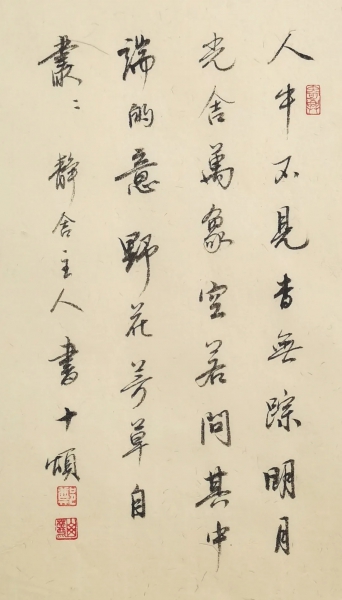 人牛不見杳無踪明月
光含萬象空若問其中
端的意野花芳草自
叢〻靜舍主人書十頌